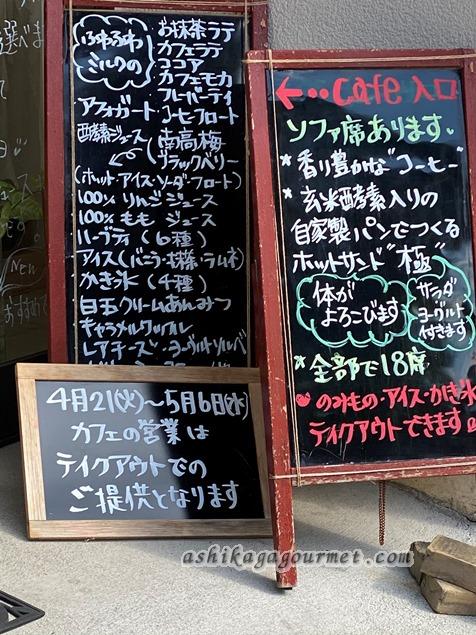 選べま
New
おすすめ
ふわふわ
ミルクの
お抹茶ラテ
カフェラテ
ココア
カフェモカ
フレーバーティ
アフォガート コーヒーフロート
酵素ジュース
南高梅
ブラックベリー
(ホット・アイス・ソーダ・フロート)
100% りんごジュース
100% もも ジュース
ハーブティ (6種)
アイス (バニラ・抹茶・ラムネ)
かき氷 (4種)
白玉クリームあんみつ
キャラメルワッフル
レアチーズ・ヨーグルトソルベ
4月21(火)〜5月6日(水)
カフェの営業は
テイクアウトでの
ご提供となります
←‥cafe 入口
ソファ席あります
* 香り豊かな"コーヒー"
* 玄米酵素入りの
自家製 パンでつくる
ホットサンド"極"
体が
よろこびます
サラダ
ヨーグルト
付きます
* 全部で18席
のみもの・アイス・かき氷
テイクアウトできます
ashikagagourmet.com